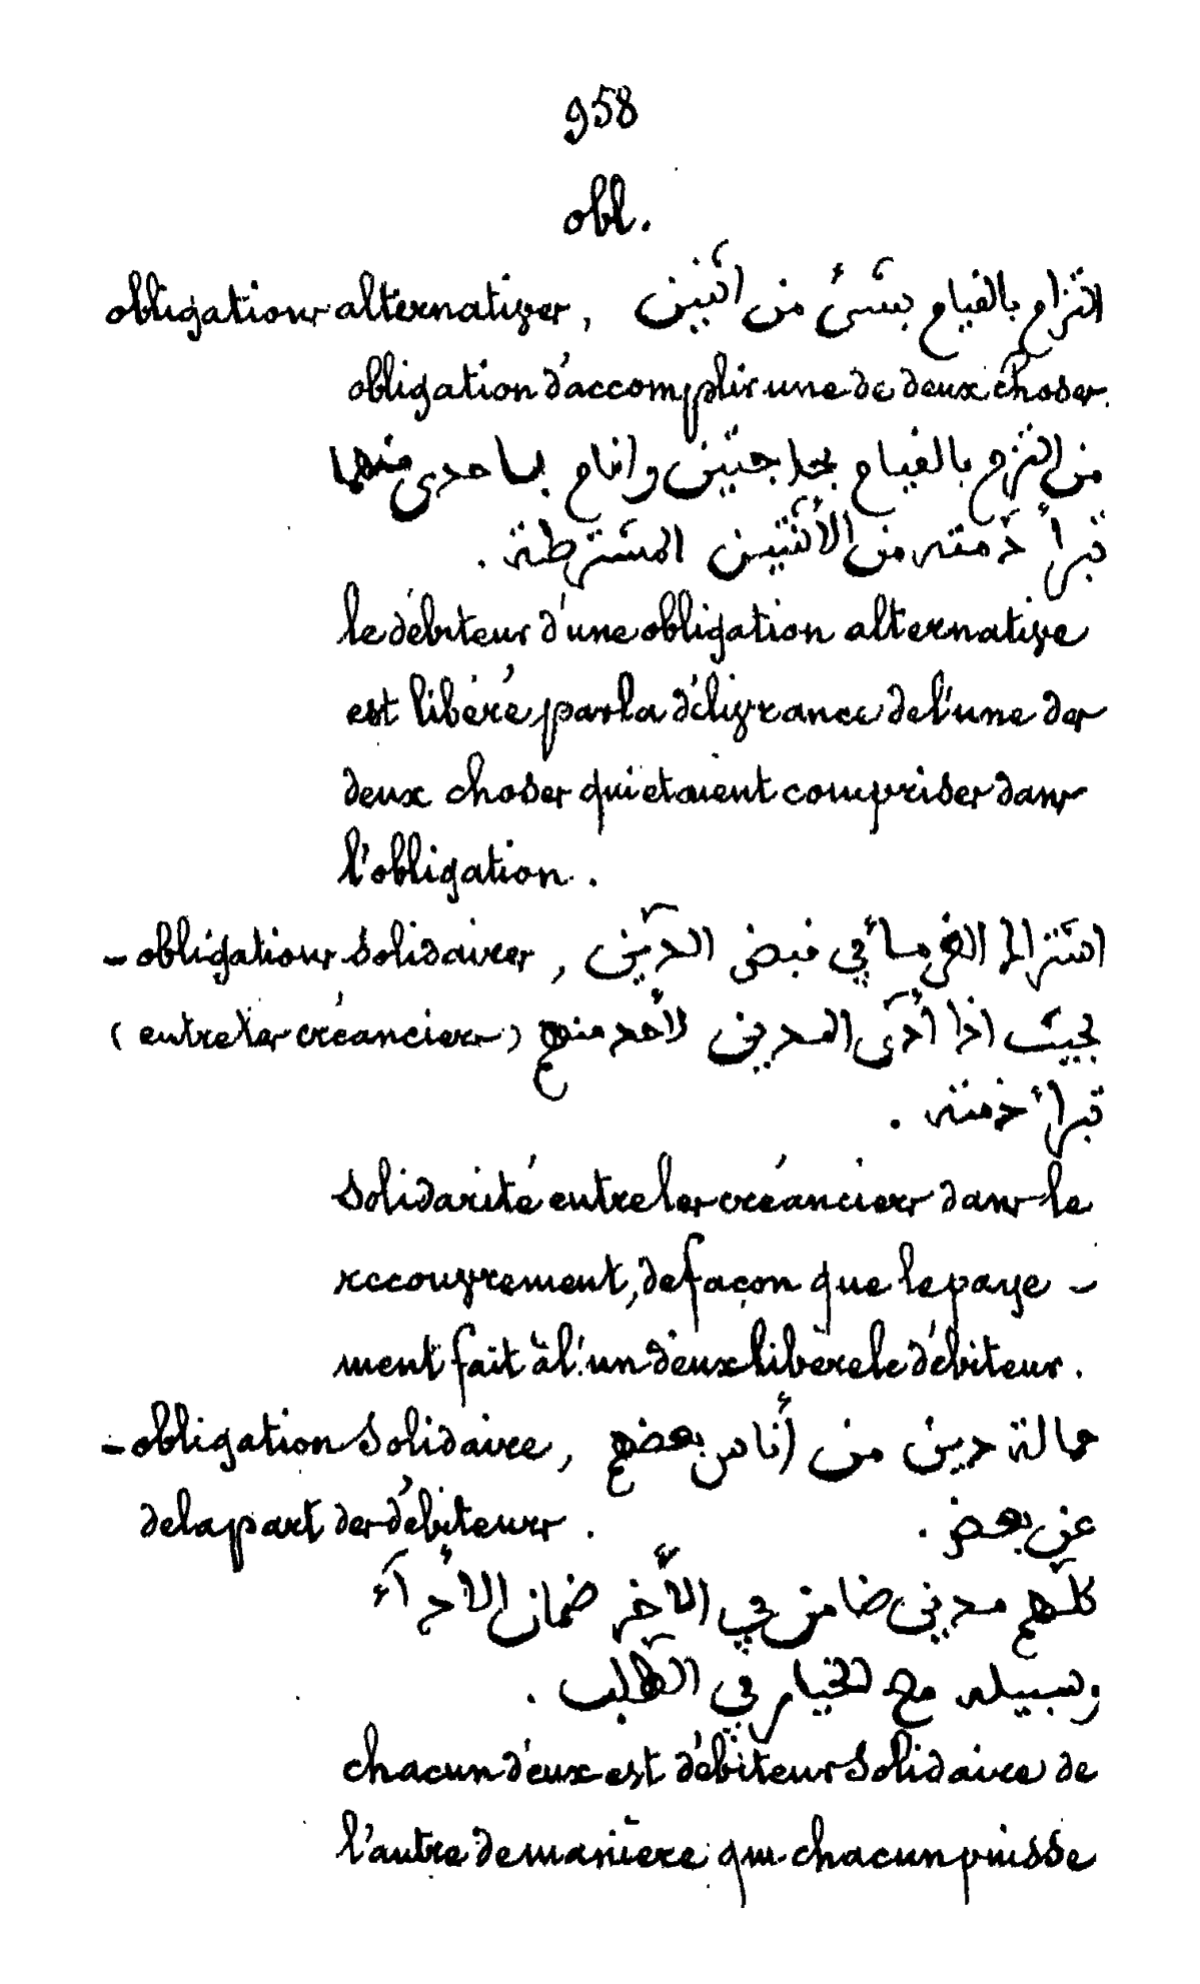 958
obl.
obligations alternatives, التزام بالقيام بشئ من اثنين
obligation d'accomplir une de deux choses.
من التزم بالقيام بحاجتين وقام باحدى منهما
تبرأ ذمته من الأثنتين المشترطة .
le débiteur d'une obligation alternative
est libéré par la délivrance de l'une des
deux choses qui etaient comprises dans
l'obligation .
- obligations solidaires, اشتراك الغرمآ في قبض الدّين
( entre les créanciers ) بحيث اذا أدّى المدين لأحد منهم
تبرأ ذمته .
solidarité entre les créanciers dans le
recouvrement, de façon que le paye -
ment fait à l'un d'eux libère le débiteur .
- obligation solidaire, حمالة دين من أناس بعضهم
de la part des débiteurs . عن بعض .
كلّهم مدين ضامن في الأخر ضمان الأدآء
وسبيله مع الخيار في الطلب .
chacun d'eux est débiteur solidaire de
l'autre de manière que chacun puisse